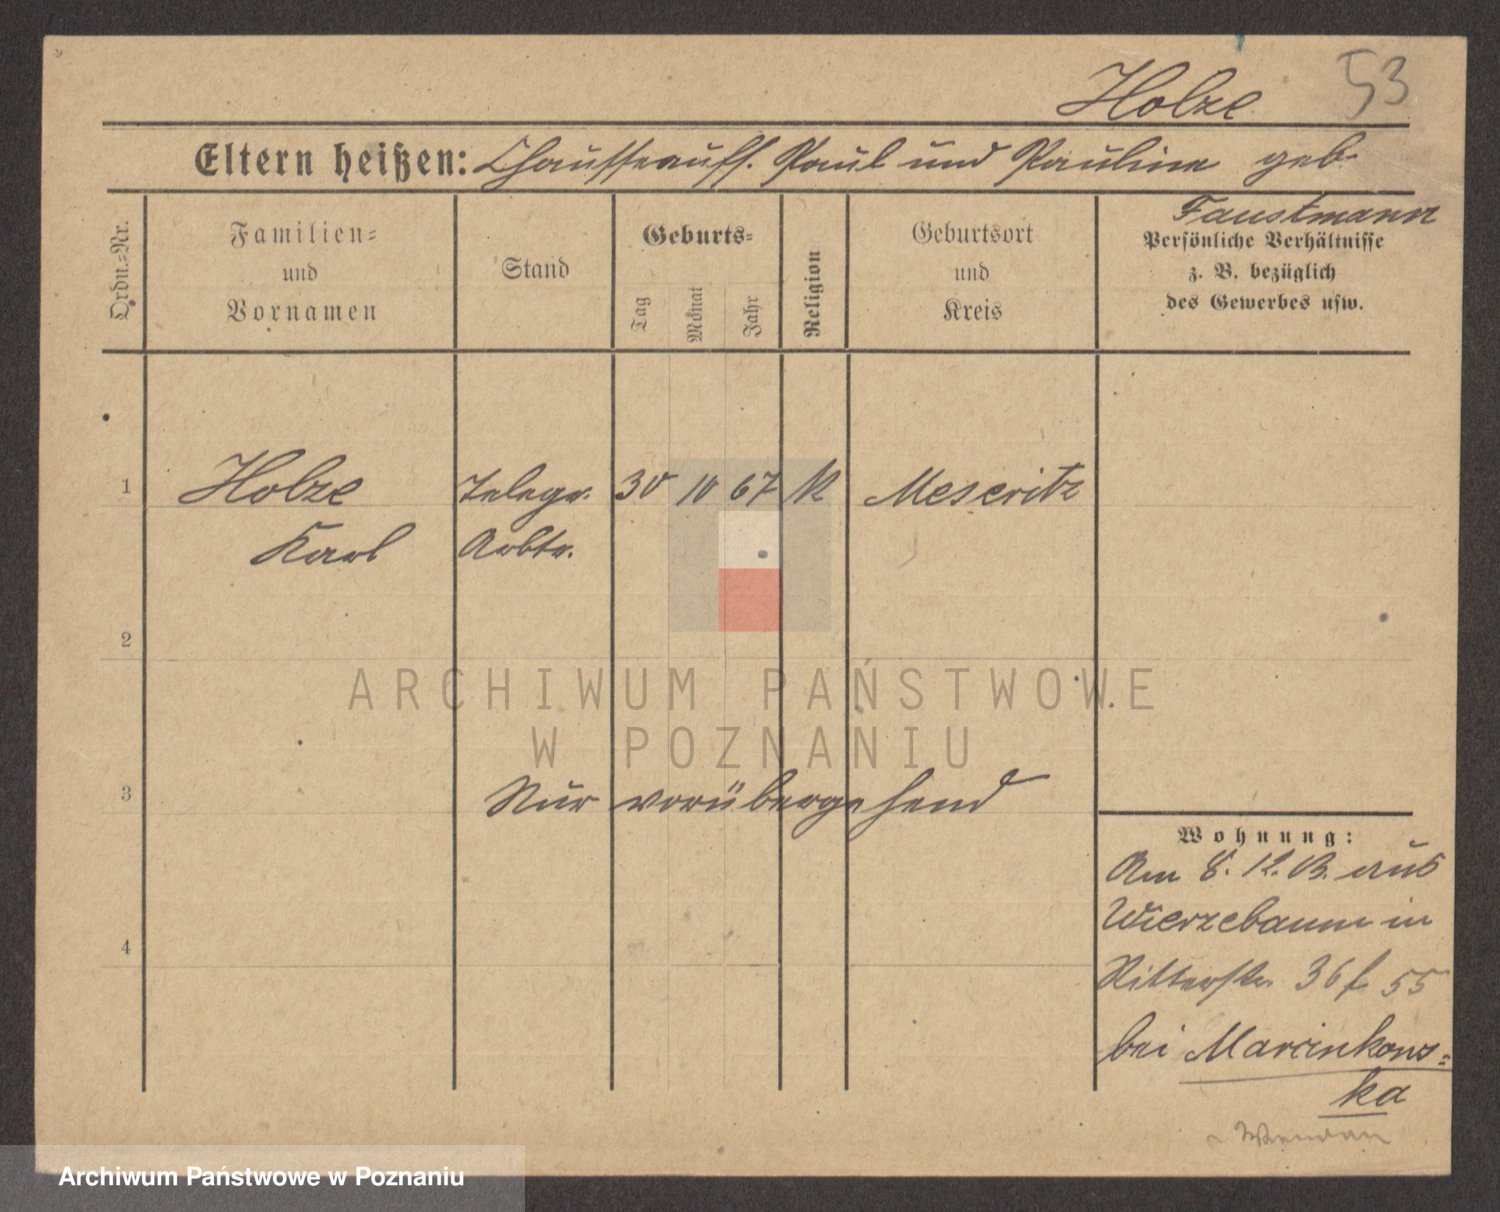 Holze 53
Eltern heißen: Chausseeauff. Paul und Pauline geb.
Faustmann
Ordn.=Nr.
Familien=
und
Vornamen
Stand
Geburts=
Tag
Monat
Jahr
Religion
Geburtsort
und
Kreis
Persönliche Verhältnisse
z. B. bezüglich
des Gewerbes usw.
1 Holze Telegr. 30 10 67 K Meseritz
Karl Arbtr.
2
ARCHIWUM PAŃSTWOWE
W POZNANIU
3 Nur vorübergehend
Wohnung:
Am 8. 12. 13. aus
Wierzebaum in
4
Ritterstr. 36 f 55
bei Marcinkows=
ka
Archiwum Państwowe w Poznaniu